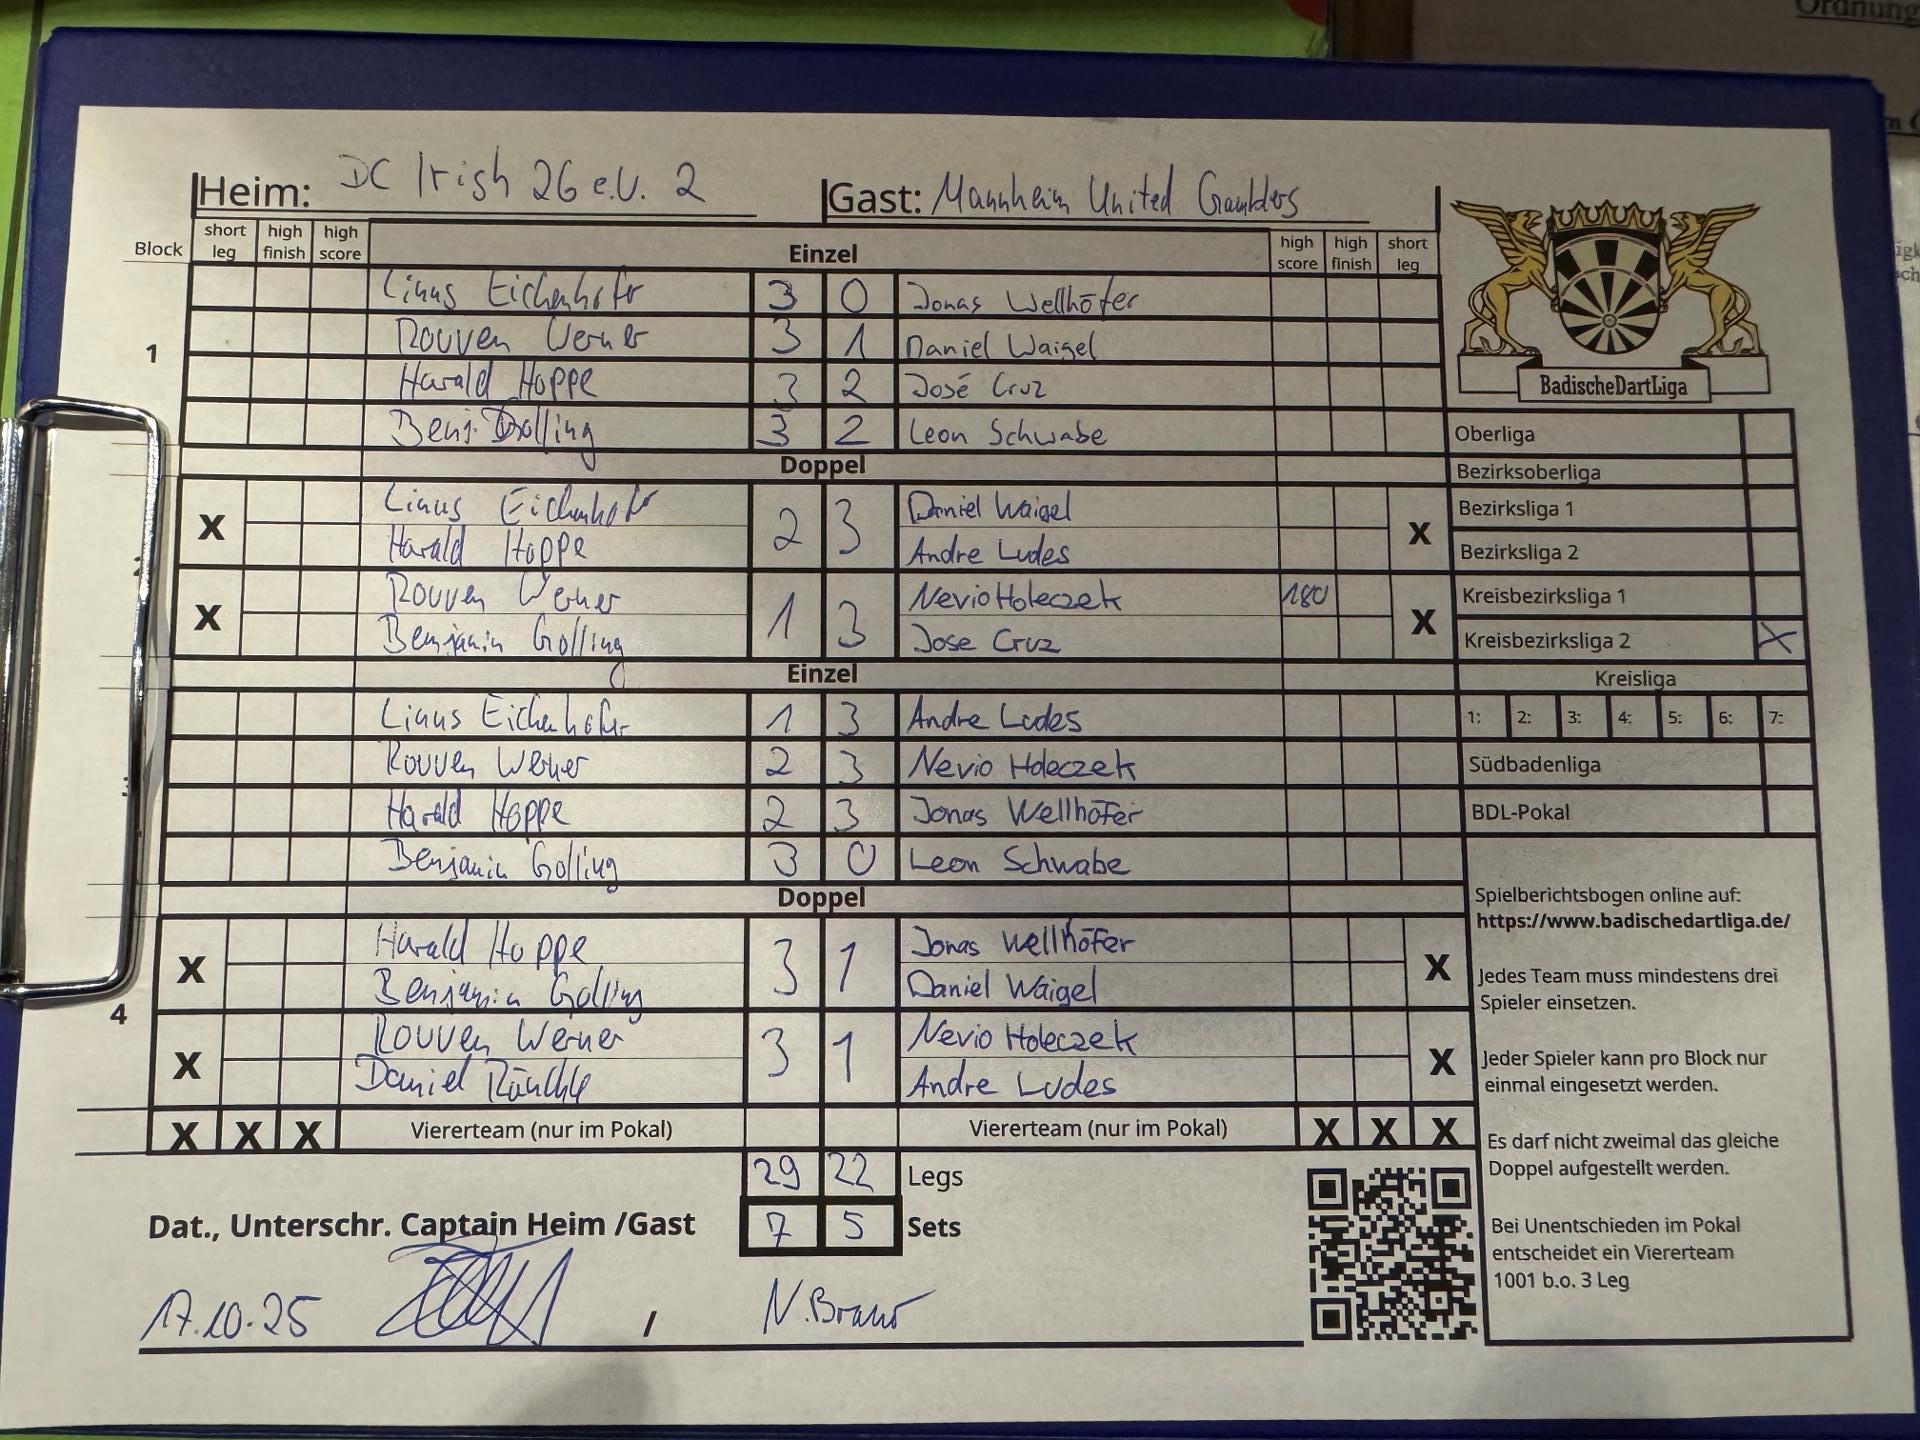 Ordnung
Heim: DC Irish 26 e.V. 2 Gast: Mannheim United Gamblers
Block short leg high finish high score Einzel high score high finish short leg
1
Linus Eichenhofer 3 0 Jonas Wellhöfer
Rouven Werner 3 1 Daniel Waigel
Harald Hoppe 3 2 José Cruz
Benj. Golling 3 2 Leon Schwabe
Doppel
X Linus Eichenhofer 2 3 Daniel Waigel X
Harald Hoppe Andre Ludes
X Rouven Werner 1 3 Nevio Holeczek 180 X
Benjamin Golling Jose Cruz
Einzel
Linus Eichenhofer 1 3 Andre Ludes
Rouven Werner 2 3 Nevio Holeczek
Harald Hoppe 2 3 Jonas Wellhöfer
Benjamin Golling 3 0 Leon Schwabe
Doppel
4
X Harald Hoppe 3 1 Jonas Wellhöfer X
Benjamin Golling Daniel Waigel
X Rouven Werner 3 1 Nevio Holeczek X
Daniel Andre Ludes
X X X Viererteam (nur im Pokal) Viererteam (nur im Pokal) X X X
29 22 Legs
7 5 Sets
Dat., Unterschr. Captain Heim /Gast
17.10.25 / N. Braun
BadischeDartLiga
Oberliga
Bezirksoberliga
Bezirksliga 1
Bezirksliga 2
Kreisbezirksliga 1
Kreisbezirksliga 2 X
Kreisliga
1: 2: 3: 4: 5: 6: 7:
Südbadenliga
BDL-Pokal
Spielberichtsbogen online auf:
https://www.badischedartliga.de/
Jedes Team muss mindestens drei
Spieler einsetzen.
Jeder Spieler kann pro Block nur
einmal eingesetzt werden.
Es darf nicht zweimal das gleiche
Doppel aufgestellt werden.
Bei Unentschieden im Pokal
entscheidet ein Viererteam
1001 b.o. 3 Leg